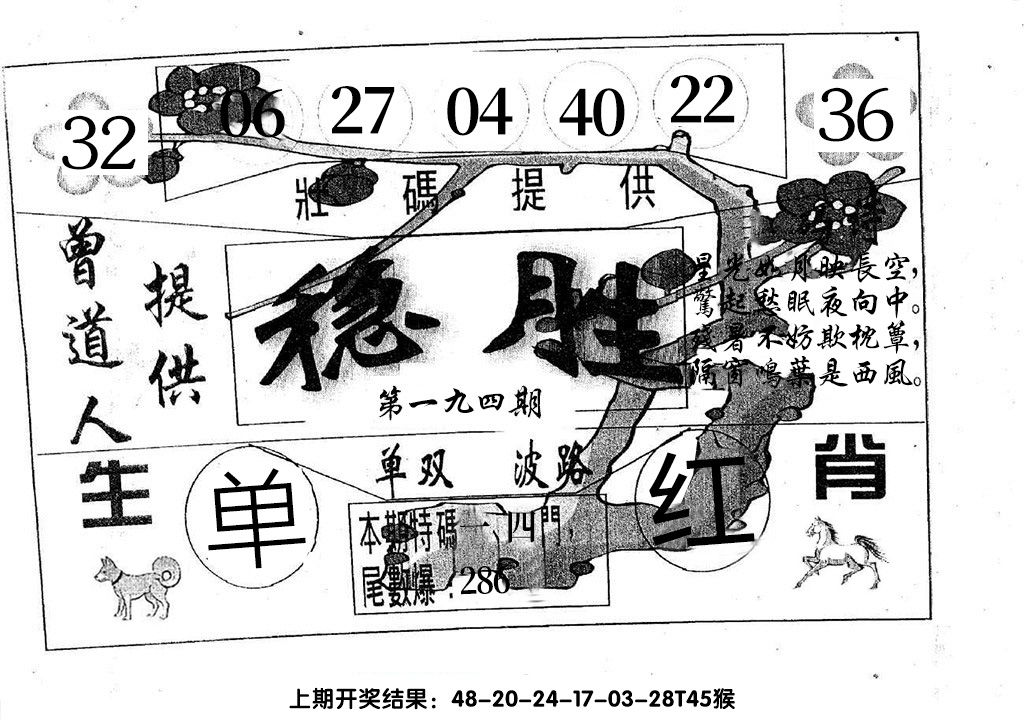 32 06 27 04 40 22 36
壯碼提供
特
曾道人
提供
稳胜
第一九四期
星光如月映長空，
驚起愁眠夜向中。
殘暑不妨欺枕簟，
隔窗鳴葉是西風。
单双 波路
生 单 红 肖
本期特碼一、四門，
尾數爆：286
上期开奖结果：48-20-24-17-03-28T45猴